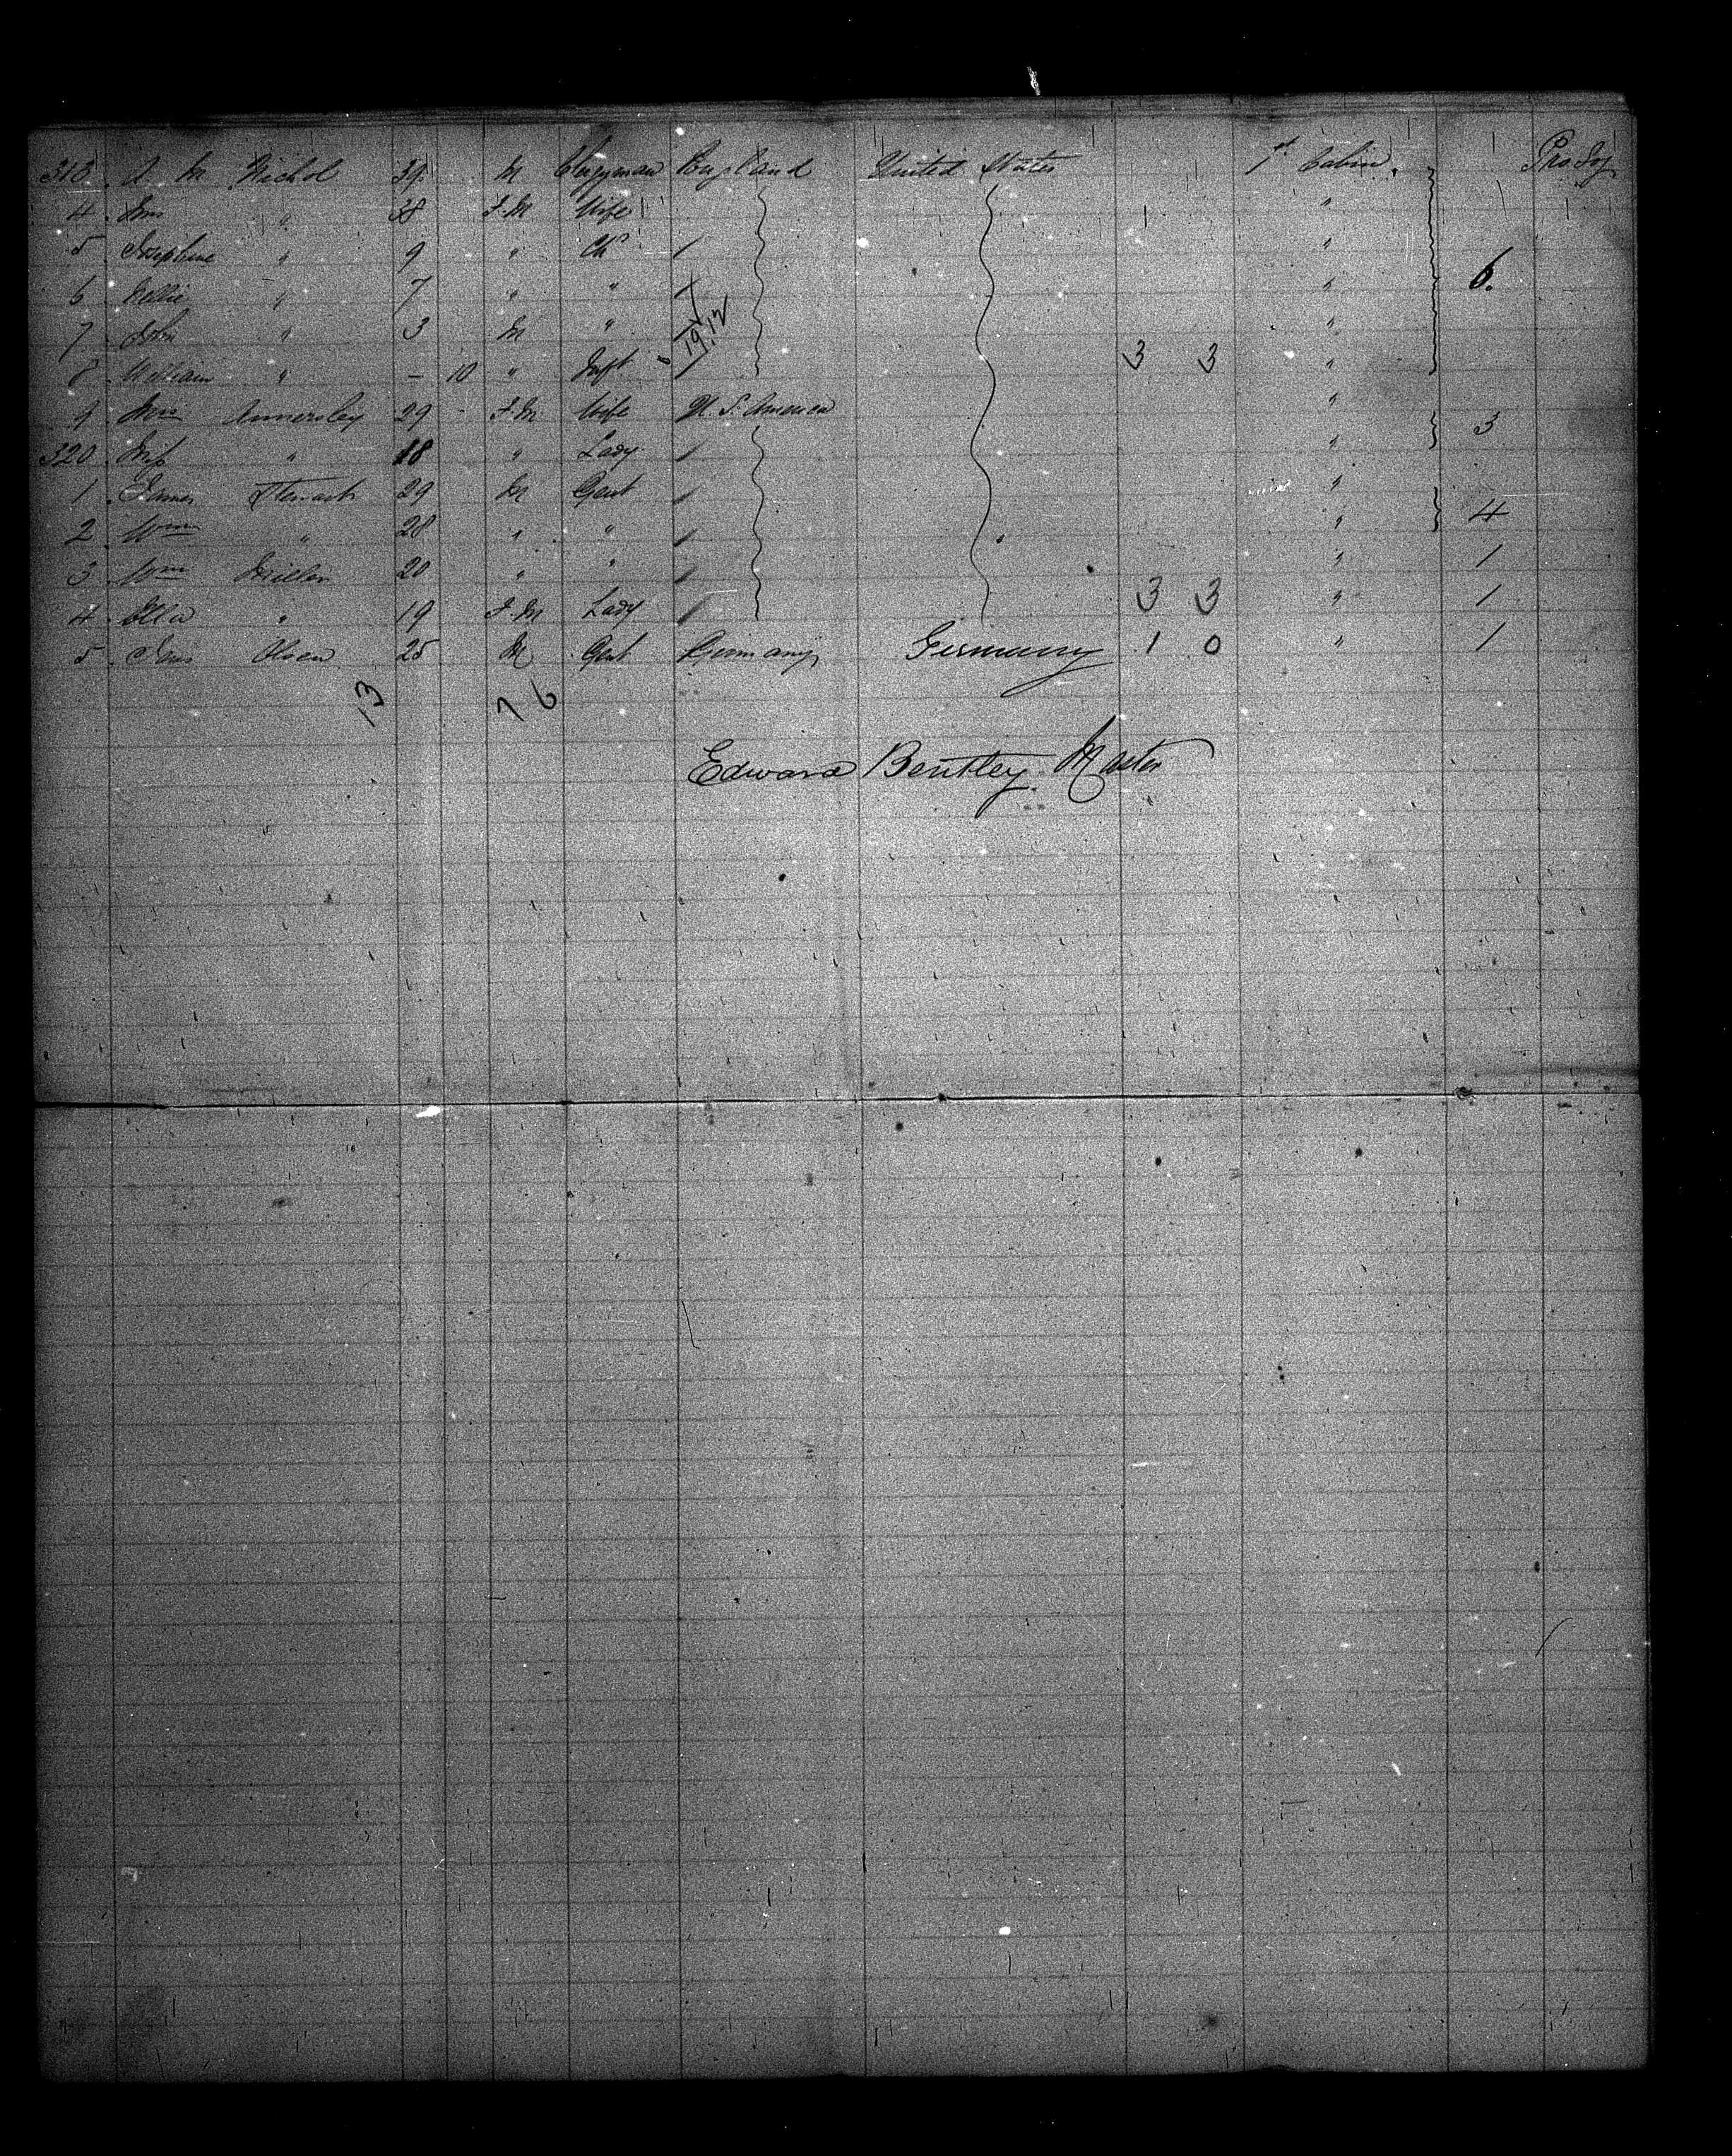 313 A M Nichol 39 M Clergyman England United States 1st Cabin
4 Mrs " 38 F.M Wife "
5 Josephine " 9 " Chd "
6 Nellie " 7 " " " 6.
7 John " 3 M " "
8 William " - 10 " Inft 3 3 "
9 Mrs Annersley 29 - F.M Wife U. S. America " 3
320 Miss " 18 " Lady "
1 James Stewart 29 M Gent "
2 Wm " 28 " " " 4
3 Wm Miller 20 " " " 1
4 Ella " 19 F.M Lady 3 3 " 1
5 Jens Olsen 25 M Gent Germany Germany 1 0 " 1
13 7 6
Edward Bentley. Master